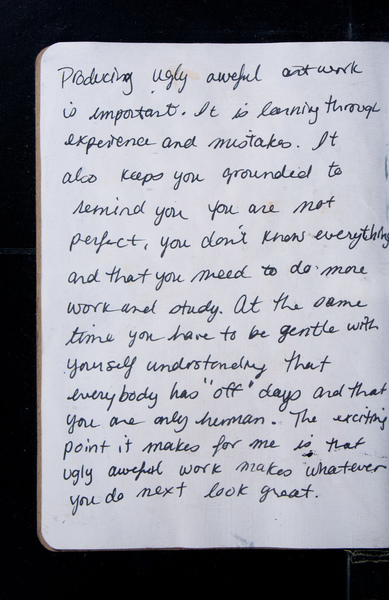 Producing ugly aweful artwork
is important. It is learning through
experience and mistakes. It
also keeps you grounded to
remind you you are not
perfect, you don't know everything
and that you need to do more
work and study. At the same
time you have to be gentle with
yourself understanding that
everybody has "off" days and that
you are only human. The exciting
point it makes for me is that
ugly aweful work makes whatever
you do next look great.